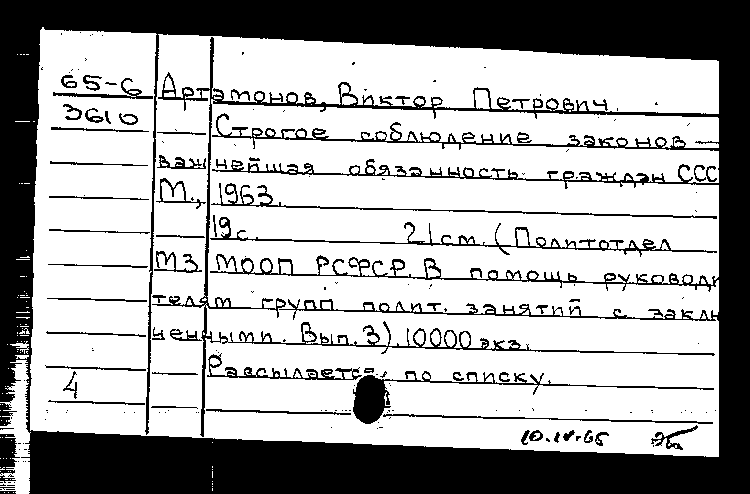 65-6 Артамонов, Виктор Петрович.
3610 Строгое соблюдение законов —
важнейшая обязанность граждан СССР
М., 1963.
19 с. 21 см. (Политотдел
МЗ МООП РСФСР. В помощь руководи
телям групп полит. занятий с заклю
ченными. Вып. 3). 10000 экз.
Рассылается по списку.
4
10.IV.65